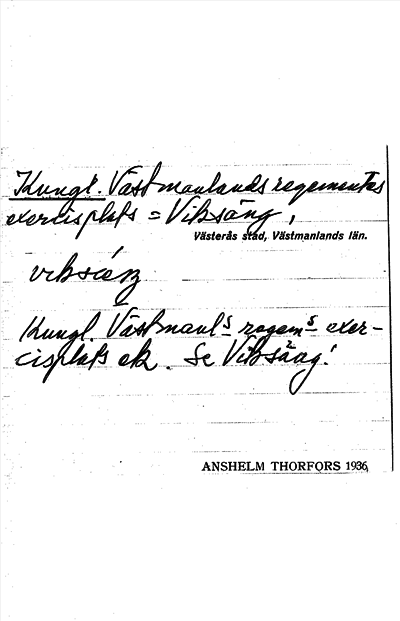 Kungl. Västmanlands regementes
exercisplats = Viksäng,
Västerås stad, Västmanlands län.
viksäŋ
Kungl. Västmanl:s regem:s exer-
cisplats ek. Se Viksäng!
ANSHELM THORFORS 1936